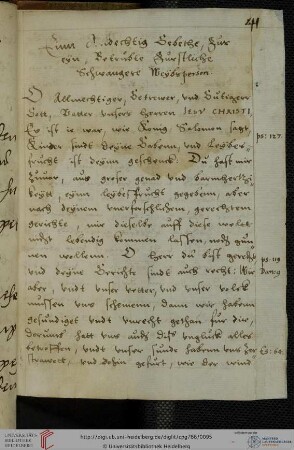 41
Ein Andechtig Gebethe, für
eyn Betrubte Fürstliche
Schwangere Weybsperson
O Allmechtiger, Getrewer, und Gütiger
Gott, Vatter unsers Herren JESU CHRISTI
Es ist ja war, wie König Salomon sagt,
Kinder sindt deyne Gaben, und Leybes
frucht ist deyn geschenck. Du hast mir
zuvar, aus groser genad und barmhertzi
keytt, eyn leybesfrucht gegeben, aber
nach deynem unerforschlichem, gerechtem
gerichte, mir dieselbe auff diese welt
nicht lebendig kommen lassen, noch gün
nen wollenn. O Herr du bist gerecht
und deyne Gerichte sindt auch recht: Wir
aber, undt unser vetter, undt unser volck
müssen uns schemenn, dann wir haben
gesündiget undt unrecht gethan für dir,
darumb hatt uns auch diß unglück alles
betroffen, undt unser sünde habenn uns zer
strawett, und dohin gefürt, wie der windt
ps: 127.
ps: 119
Dan: 9
Es: 64
http://digi.ub.uni-heidelberg.de/diglit/cpg786/0095
© Universitätsbibliothek Heidelberg
UNIVERSITÄTS-
BIBLIOTHEK
HEIDELBERG